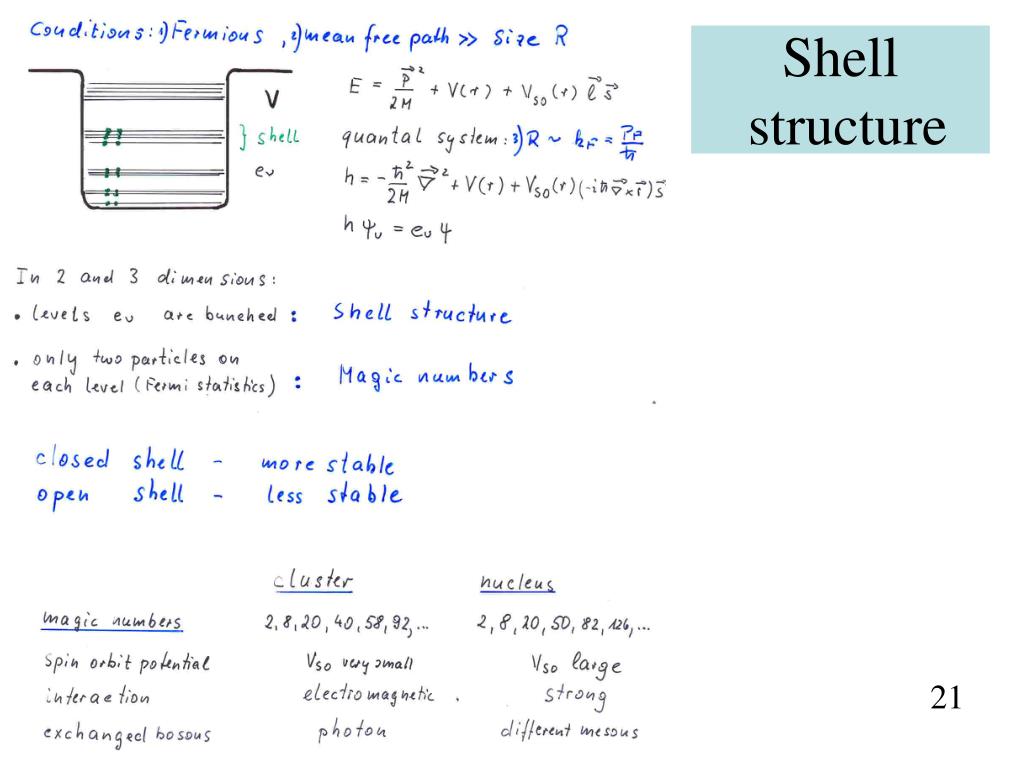 Shell
structure
Conditions: 1) Fermions , 2) mean free path >> Size R
V
} shell
eν
E = p⃗²/2M + V(r) + V_SO(r) l⃗ s⃗
quantal system: 3) R ~ k_F = P_F/ħ
h = -ħ²/2M ∇⃗² + V(r) + V_SO(r)(-iħ∇⃗×r⃗)s⃗
h ψν = eν ψ
In 2 and 3 dimensions:
• levels eν are bunched : Shell structure
• only two particles on
each level (Fermi statistics) : Magic numbers
closed shell - more stable
open shell - less stable
cluster nucleus
magic numbers 2, 8, 20, 40, 58, 92, ... 2, 8, 20, 50, 82, 126, ...
spin orbit potential V_SO very small V_SO large
interaction electromagnetic . strong
exchanged bosons photon different mesons
21